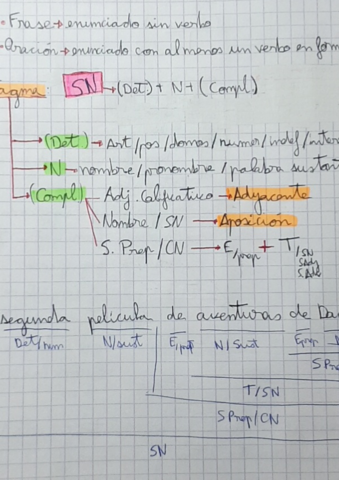 • Frase → enunciado sin verbo
• Oración → enunciado con al menos un verbo en form
agma: SN → (Det) + N + (Compl)
→ (Det) → Art/pos/demos/numer/indef/inter
→ N → nombre/pronombre/palabra sustan
→ (Compl) Adj. Calificativo → Adyacente
Nombre/SN → Aposición
S. Prep/CN → E/prep + T/SN
SAdj
SAdv
segunda película de aventuras de Da
Det/num N/sust E/prep N/Sust E/prep
SPre
T/SN
SPrep/CN
SN